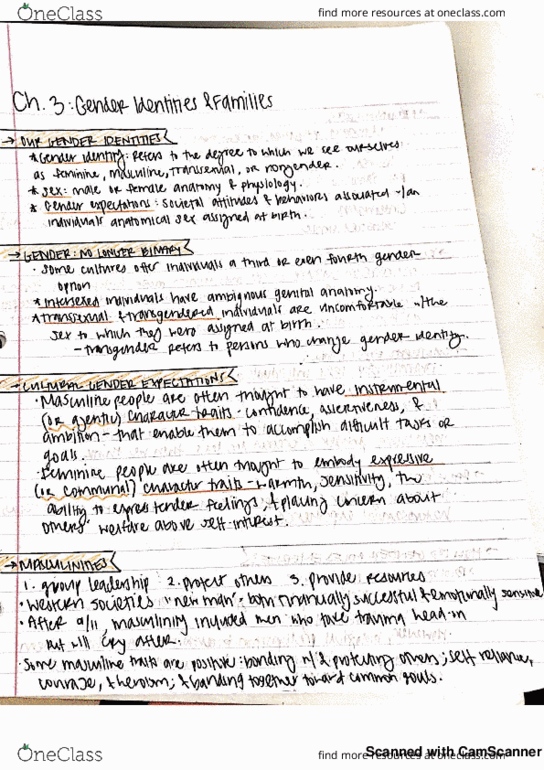 OneClass
find more resources at oneclass.com
Ch. 3: Gender Identities & Families
→ OUR GENDER IDENTITIES
* Gender identity: refers to the degree to which we see ourselves
as feminine, masculine, transsexual, or nongender.
* sex: male or female anatomy & physiology.
* Gender expectations: societal attitudes & behaviors associated w/an
individuals anatomical sex assigned at birth.
→ GENDER: NO LONGER BINARY
· Some cultures offer individuals a third or even fourth gender
option
* Intersexed individuals have ambiguous genital anatomy.
* Transsexual & transgendered individuals are uncomfortable w/the
sex to which they were assigned at birth.
- transgender refers to persons who change gender identity.
→ CULTURAL GENDER EXPECTATIONS
· Masculine people are often thought to have instrumental
(or agentic) character traits - confidence, assertiveness, &
ambition - that enable them to accomplish difficult tasks or
goals.
· Feminine people are often thought to embody expressive
(or communal) character traits - warmth, sensitivity, the
ability to express tender feelings, & placing concern about
others' welfare above self-interest.
→ MASCULINITIES
1. group leadership 2. protect others 3. provide resources
· Western societies "new man": both financially successful & emotionally sensitive
· After 9/11 masculinity included men who take trauma head-on
but will cry after.
· Some masculine traits are positive: bonding w/ & protecting others; self reliance,
courage, & heroism; & banding together toward common goals.
Scanned with CamScanner
OneClass
find more resources at oneclass.com